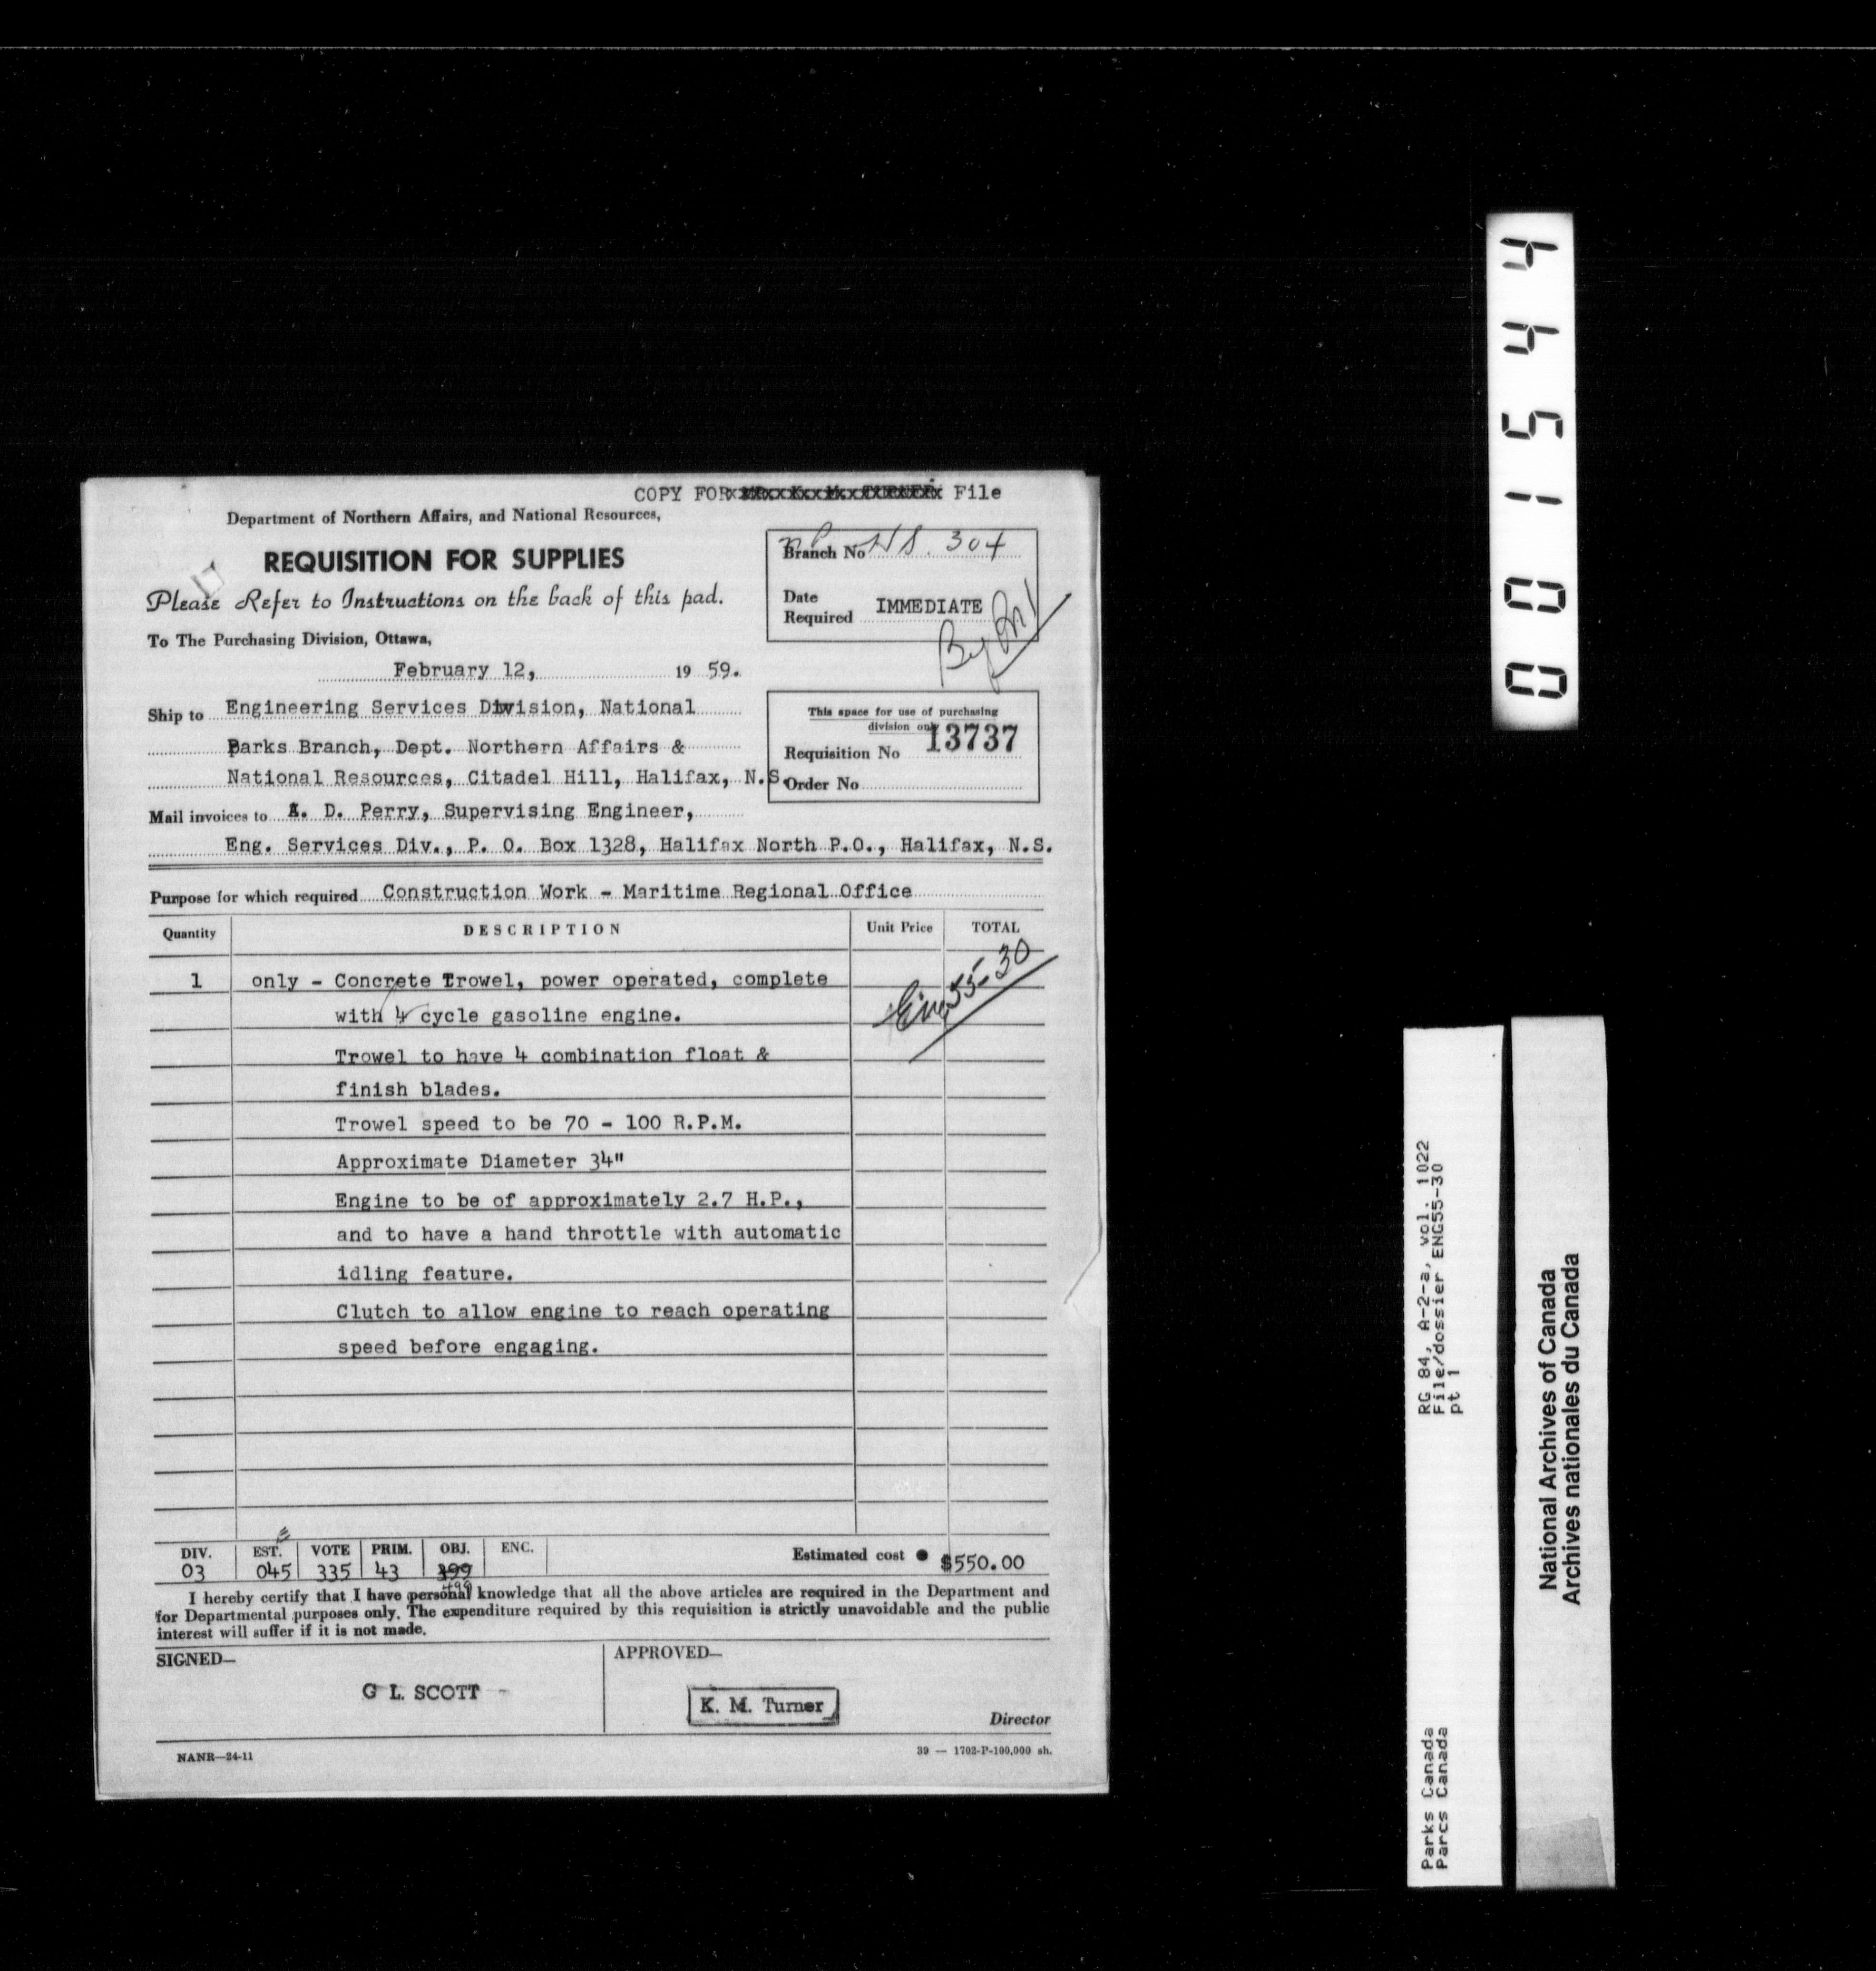 COPY FOR File
Department of Northern Affairs, and National Resources,
REQUISITION FOR SUPPLIES
Please Refer to Instructions on the back of this pad.
To The Purchasing Division, Ottawa,
February 12, 19 59.
Branch No 304
Date
Required IMMEDIATE
Ship to Engineering Services Division, National
Parks Branch, Dept. Northern Affairs &
National Resources, Citadel Hill, Halifax, N.S.
This space for use of purchasing
division only
Requisition No 13737
Order No
Mail invoices to A. D. Perry, Supervising Engineer,
Eng. Services Div., P. O. Box 1328, Halifax North P.O., Halifax, N.S.
Purpose for which required Construction Work - Maritime Regional Office
Quantity DESCRIPTION Unit Price TOTAL
1 only - Concrete Trowel, power operated, complete
with 4 cycle gasoline engine.
Eng 55-30
Trowel to have 4 combination float &
finish blades.
Trowel speed to be 70 - 100 R.P.M.
Approximate Diameter 34"
Engine to be of approximately 2.7 H.P.,
and to have a hand throttle with automatic
idling feature.
Clutch to allow engine to reach operating
speed before engaging.
DIV. EST. VOTE PRIM. OBJ. ENC.
03 045 335 43 399
499
Estimated cost $550.00
I hereby certify that I have personal knowledge that all the above articles are required in the Department and
for Departmental purposes only. The expenditure required by this requisition is strictly unavoidable and the public
interest will suffer if it is not made.
SIGNED—
G L. SCOTT
APPROVED—
K. M. Turner
Director
NANR—24-11
39 — 1702-P-100,000 sh.
001544
RG 84, A-2-a, vol. 1022
File/dossier ENG55-30
pt 1
Parks Canada
Parcs Canada
National Archives of Canada
Archives nationales du Canada